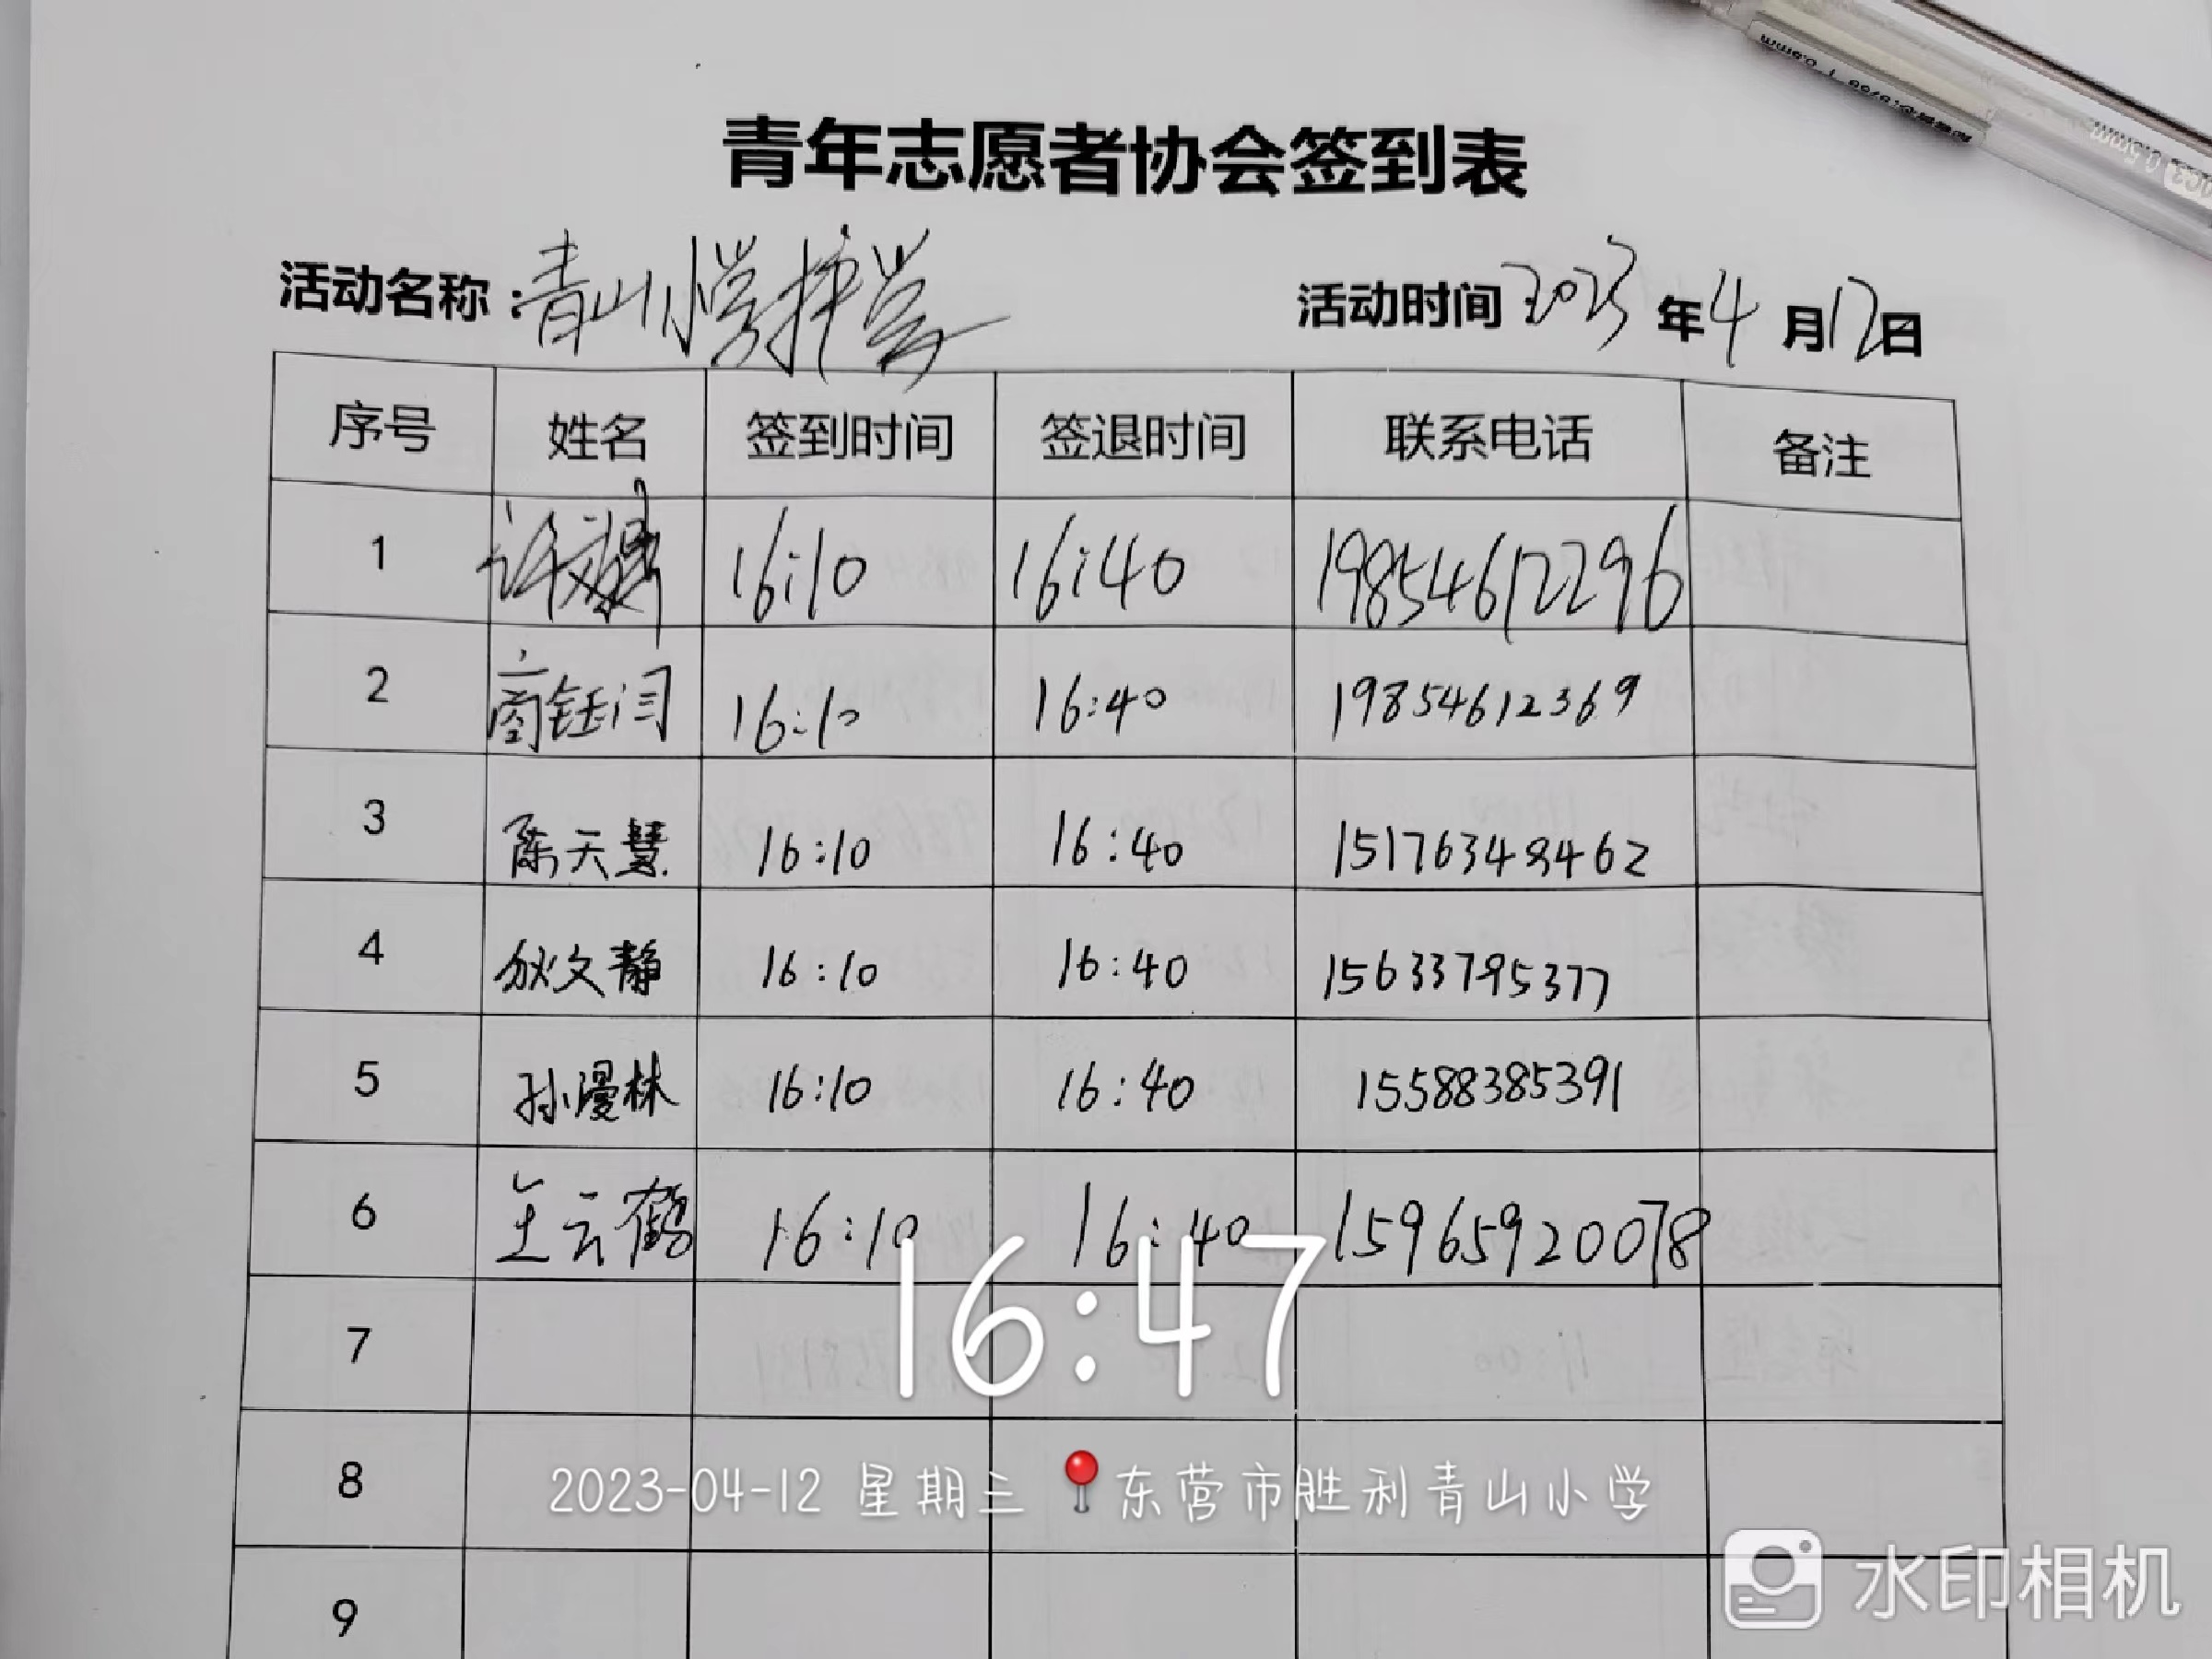 青年志愿者协会签到表
活动名称：青山小学护学 活动时间 2023 年 4 月 12 日
序号 姓名 签到时间 签退时间 联系电话 备注
1 许 16:10 16:40 19854612296
2 商钰闫 16:10 16:40 19854612369
3 陈天慧 16:10 16:40 15176349462
4 狄文静 16:10 16:40 15633795377
5 孙漫林 16:10 16:40 15588385391
6 王云鹤 16:10 16:40 15965920078
7
16:47
8
2023-04-12 星期三 东营市胜利青山小学
水印相机
9